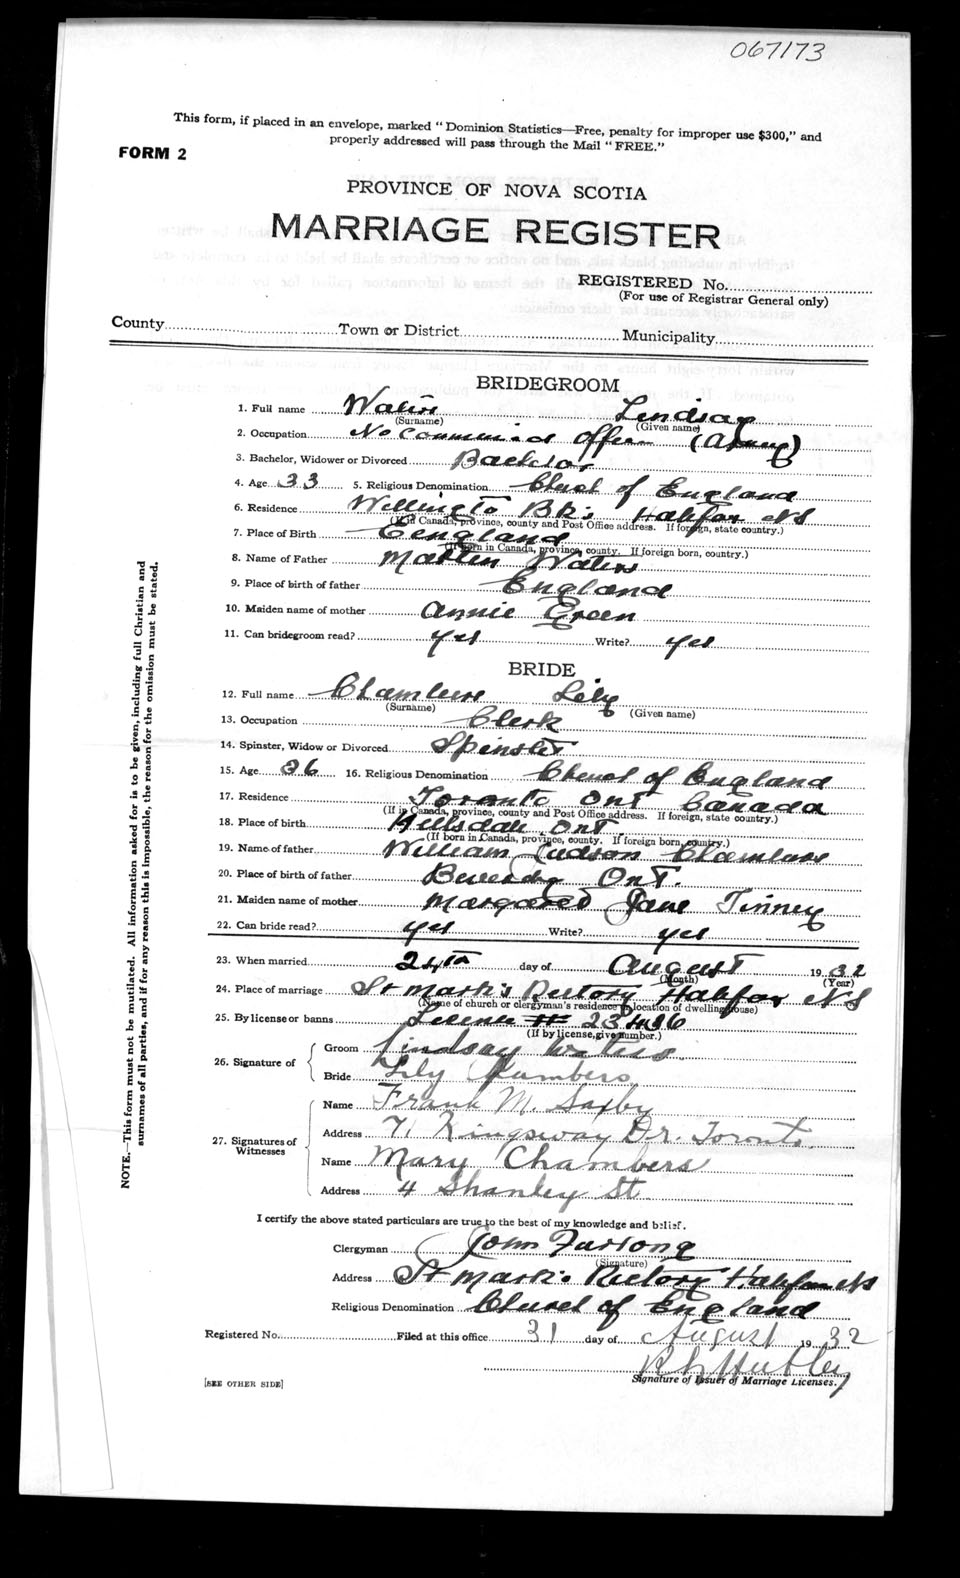 067173
This form, if placed in an envelope, marked "Dominion Statistics—Free, penalty for improper use $300," and
properly addressed will pass through the Mail "FREE."
FORM 2
PROVINCE OF NOVA SCOTIA
MARRIAGE REGISTER
REGISTERED No.
(For use of Registrar General only)
County Town or District Municipality
BRIDEGROOM
1. Full name Waters Lindsay
(Surname) (Given name)
2. Occupation Officer (Army)
3. Bachelor, Widower or Divorced Bachelor
4. Age 33 5. Religious Denomination Church of England
6. Residence Wellington Bks Halifax NS
(If in Canada, province, county and Post Office address. If foreign, state country.)
7. Place of Birth England
(If born in Canada, province, county. If foreign born, country.)
8. Name of Father Martin Waters
9. Place of birth of father England
10. Maiden name of mother Annie Green
11. Can bridegroom read? Yes Write? Yes
BRIDE
12. Full name Chambers Lily
(Surname) (Given name)
13. Occupation Clerk
14. Spinster, Widow or Divorced Spinster
15. Age 36 16. Religious Denomination Church of England
17. Residence Toronto Ont Canada
(If in Canada, province, county and Post Office address. If foreign, state country.)
18. Place of birth Hillsdale Ont.
(If born in Canada, province, county. If foreign born, country.)
19. Name of father William Judson Chambers
20. Place of birth of father Beverley Ont.
21. Maiden name of mother Margaret Jane Tinney
22. Can bride read? Yes Write? Yes
23. When married 24th day of August 1932
(Month) (Year)
24. Place of marriage St Mark's Rectory Halifax NS
(Name of church or clergyman's residence or location of dwelling house)
25. By license or banns License # 23496
(If by license, give number.)
26. Signature of Groom Lindsay Waters
Bride Lily Chambers
27. Signatures of Witnesses
Name Frank M. Saxby
Address 71 Kingsway Dr. Toronto
Name Mary Chambers
Address 4 Shanley St.
I certify the above stated particulars are true to the best of my knowledge and belief.
Clergyman John Furlong
(Signature)
Address St Mark's Rectory Halifax NS
Religious Denomination Church of England
Registered No. Filed at this office 31 day of August 1932
Hubley
[SEE OTHER SIDE] Signature of Issuer of Marriage Licenses.
NOTE.—This form must not be mutilated. All information asked for is to be given, including full Christian and
surnames of all parties, and if for any reason this is impossible, the reason for the omission must be stated.